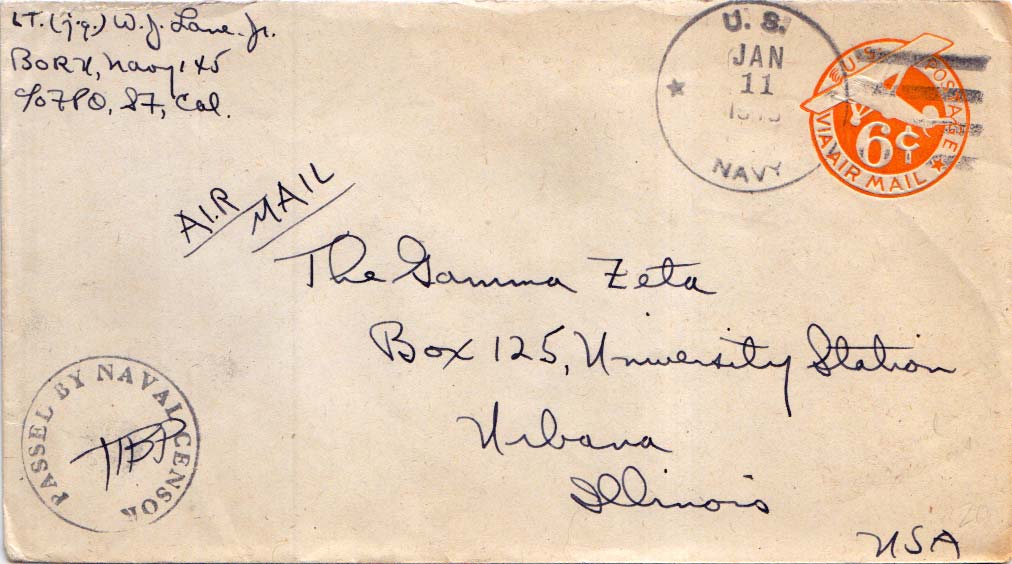 LT. (j.g.) W. J. Lane Jr.
BORU, Navy 145
c/o FPO, SF, Cal.
U. S.
JAN
11
NAVY
U.S. POSTAGE
6¢
VIA AIR MAIL
AIR MAIL
The Gamma Zeta
Box 125, University Station
Urbana
Illinois
USA
PASSED BY NAVAL CENSOR